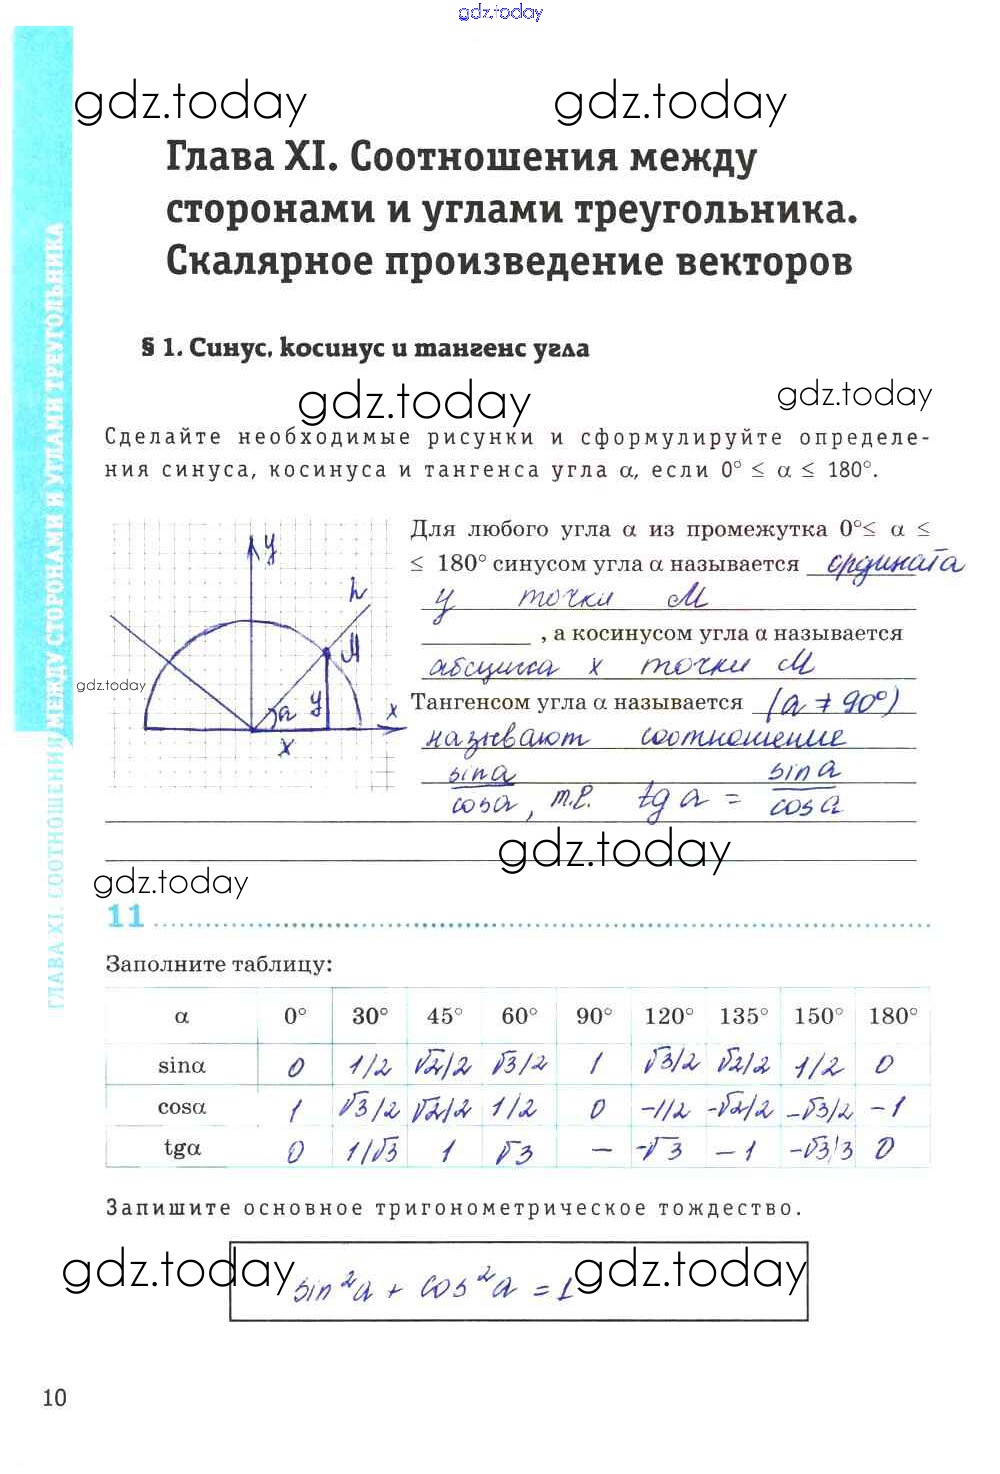 gdz.today
gdz.today gdz.today
Глава XI. Соотношения между
сторонами и углами треугольника.
Скалярное произведение векторов
§ 1. Синус, косинус и тангенс угла
gdz.today gdz.today
Сделайте необходимые рисунки и сформулируйте определе-
ния синуса, косинуса и тангенса угла α, если 0° ≤ α ≤ 180°.
Для любого угла α из промежутка 0°≤ α ≤
≤ 180° синусом угла α называется ордината
y точки M
, а косинусом угла α называется
абсцисса x точки M
Тангенсом угла α называется (α ≠ 90°)
называют соотношение
sin α / cos α, т.е. tg α = sin α / cos α
y
h
M
α y x
x
gdz.today
gdz.today
gdz.today
11
Заполните таблицу:
α 0° 30° 45° 60° 90° 120° 135° 150° 180°
sinα 0 1/2 √2/2 √3/2 1 √3/2 √2/2 1/2 0
cosα 1 √3/2 √2/2 1/2 0 -1/2 -√2/2 -√3/2 -1
tgα 0 1/√3 1 √3 — -√3 -1 -√3/3 0
Запишите основное тригонометрическое тождество.
gdz.today gdz.today
sin²α + cos²α = 1
10
ГЛАВА XI. СООТНОШЕНИЯ МЕЖДУ СТОРОНАМИ И УГЛАМИ ТРЕУГОЛЬНИКА